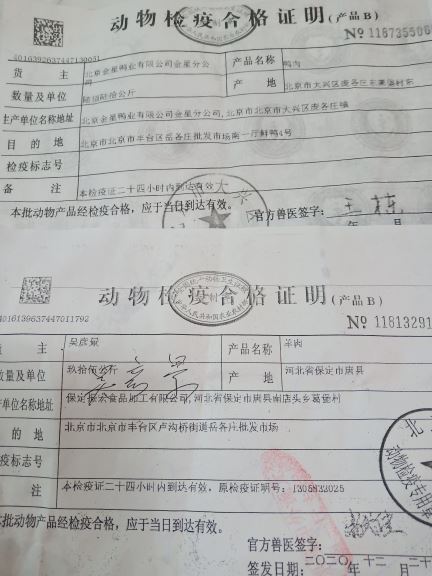 动物检疫合格证明(产品B)
4016392637447130051
№ 118735506
货 主 北京金星鸭业有限公司金星分公司 产品名称 鸭肉
数量及单位 陆佰陆拾公斤 产 地 北京市大兴区庞各庄
生产单位名称地址 北京金星鸭业有限公司金星分公司,北京市北京市大兴区庞各庄镇
目 的 地 北京市北京市丰台区岳各庄批发市场南一厅鲜鸭4号
检疫标志号
备 注 本检疫证二十四小时内到达有效
本批动物产品经检疫合格,应于当日到达有效。
官方兽医签字:王栋
年 月
动物检疫合格证明(产品B)
4016139637447011792
№ 11813291
主 吴彦景 产品名称 羊肉
数量及单位 玖拾伍公斤 产 地 河北省保定市唐县
单位名称地址 保定振宏食品加工有限公司,河北省保定市唐县南店头乡葛堡村
的 地 北京市北京市丰台区卢沟桥街道岳各庄批发市场
疫标志号
注 本检疫证二十四小时内到达有效,原检疫证明号:1305833025
批动物产品经检疫合格,应于当日到达有效。
动物检疫专用章
官方兽医签字:
签发日期:二〇二〇年十二月二十